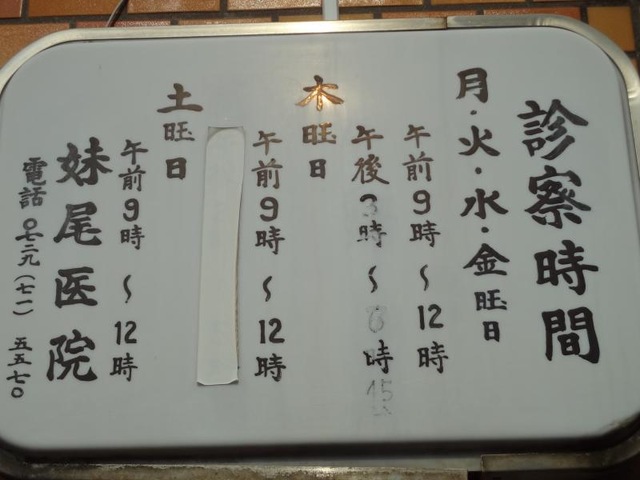 診察時間
月・火・水・金曜日
午前9時～12時
午後3時～6時15
木曜日
午前9時～12時
土曜日
午前9時～12時
妹尾医院
電話〇七二九(七一)五五七〇